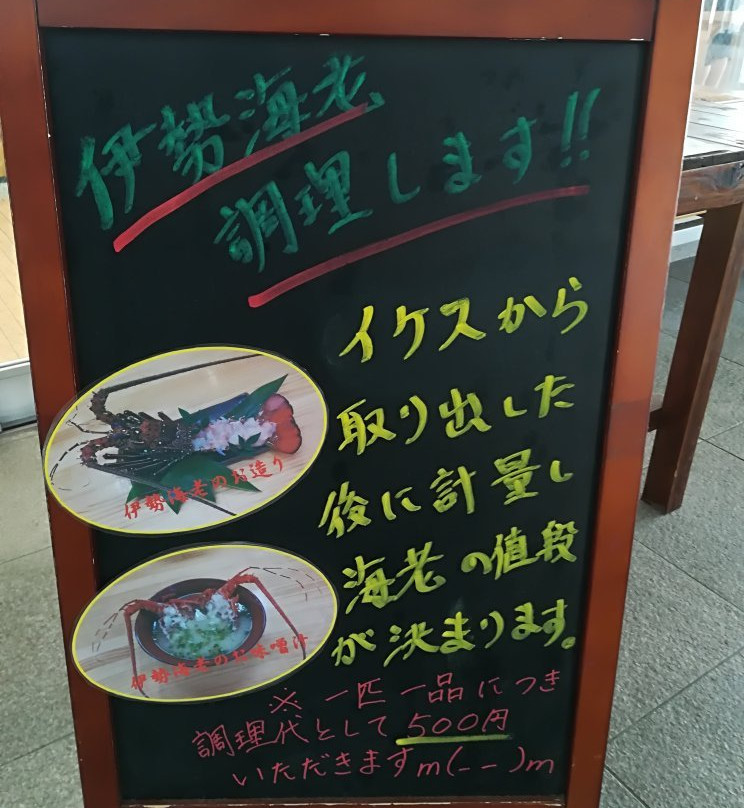 伊勢海老
調理します!!
イケスから
取り出した
後に計量し
海老の値段
が決まります。
伊勢海老のお造り
伊勢海老のお味噌汁
※一匹一品につき
調理代として500円
いただきますm(--)m